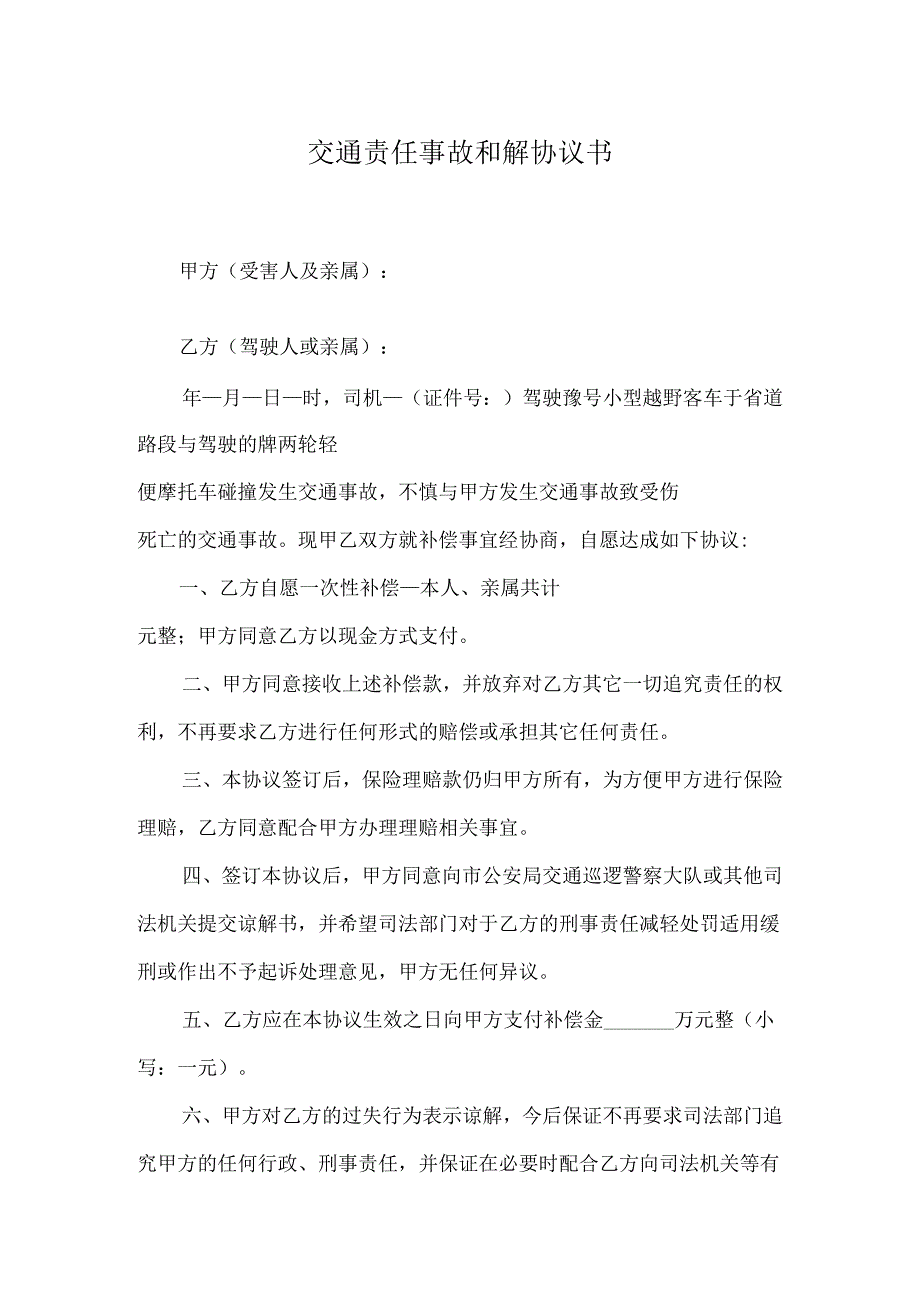 交通责任事故和解协议书
甲方（受害人及亲属）:
乙方（驾驶人或亲属）:
年—月—日—时，司机—（证件号：）驾驶豫号小型越野客车于省道
路段与驾驶的牌两轮轻
便摩托车碰撞发生交通事故，不慎与甲方发生交通事故致受伤
死亡的交通事故。现甲乙双方就补偿事宜经协商，自愿达成如下协议:
一、乙方自愿一次性补偿—本人、亲属共计
元整；甲方同意乙方以现金方式支付。
二、甲方同意接收上述补偿款，并放弃对乙方其它一切追究责任的权
利，不再要求乙方进行任何形式的赔偿或承担其它任何责任。
三、本协议签订后，保险理赔款仍归甲方所有，为方便甲方进行保险
理赔，乙方同意配合甲方办理理赔相关事宜。
四、签订本协议后，甲方同意向市公安局交通巡逻警察大队或其他司
法机关提交谅解书，并希望司法部门对于乙方的刑事责任减轻处罚适用缓
刑或作出不予起诉处理意见，甲方无任何异议。
五、乙方应在本协议生效之日向甲方支付补偿金_______万元整（小
写：一元）。
六、甲方对乙方的过失行为表示谅解，今后保证不再要求司法部门追
究甲方的任何行政、刑事责任，并保证在必要时配合乙方向司法机关等有